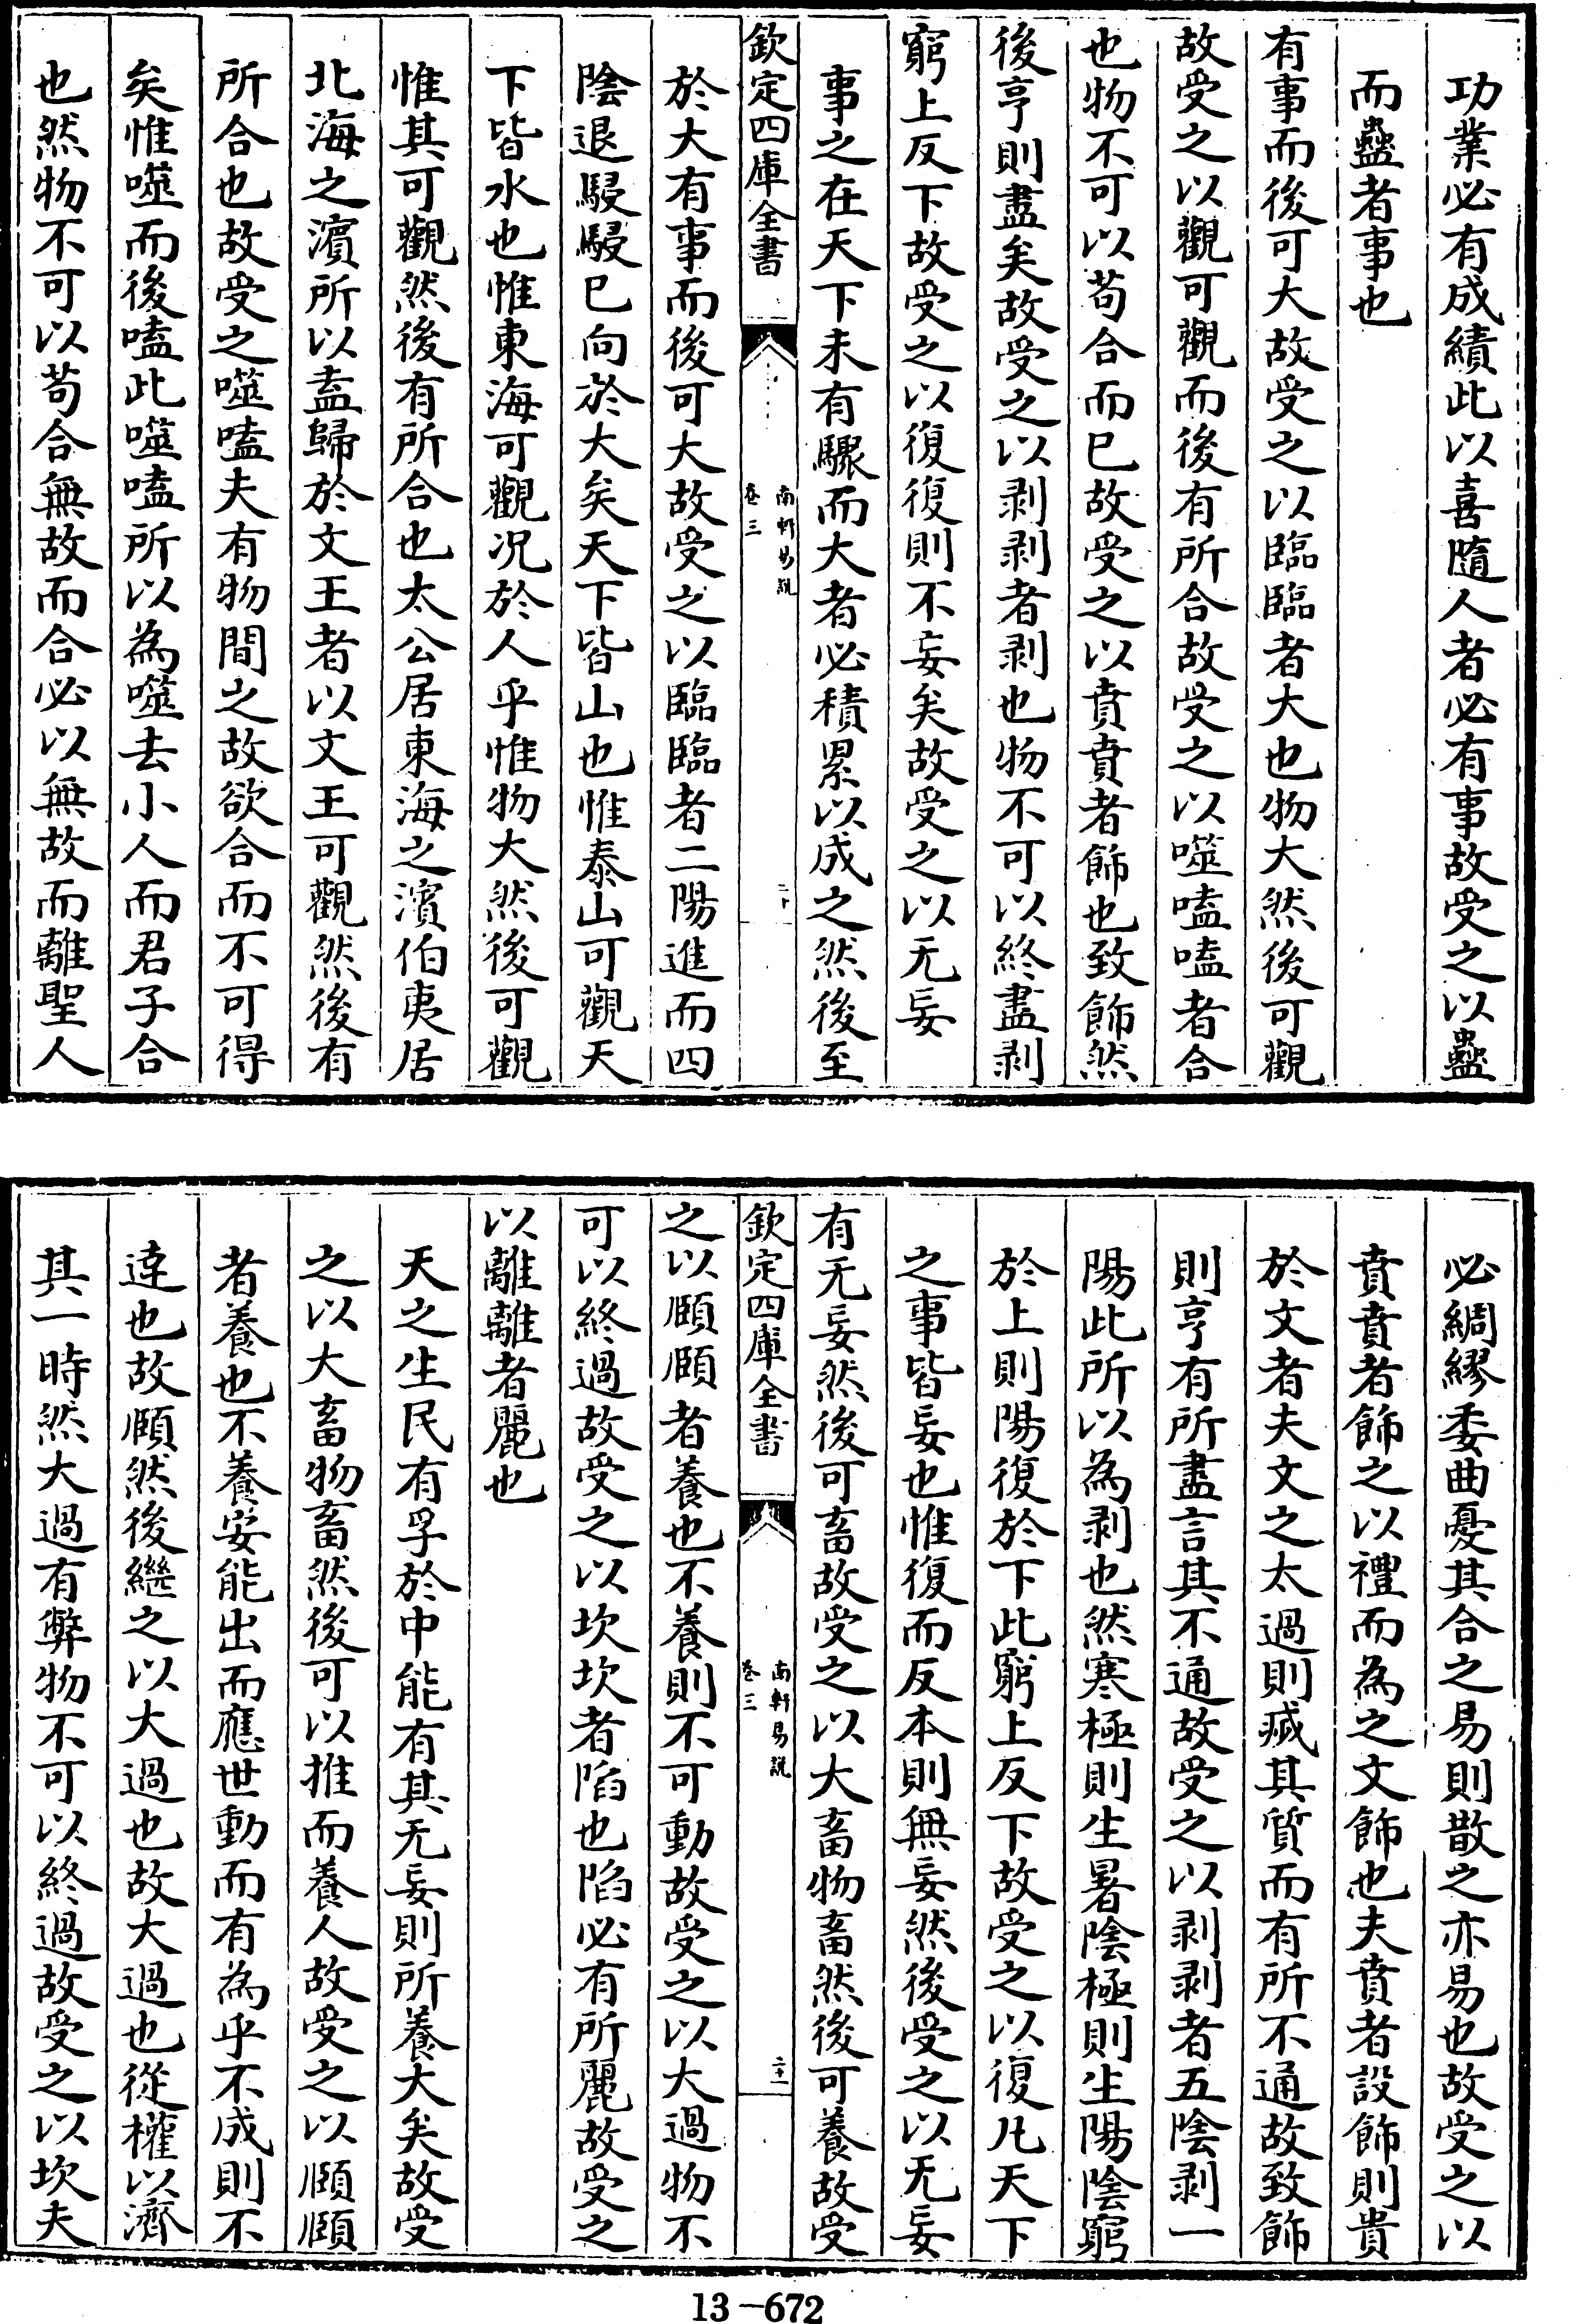 功業必有成績此以喜隨人者必有事故受之以蠱
而蠱者事也
有事而後可大故受之以臨臨者大也物大然後可觀
故受之以觀可觀而後有所合故受之以噬嗑嗑者合
也物不可以苟合而已故受之以賁賁者飾也致飾然
後亨則盡矣故受之以剥剥者剥也物不可以終盡剥
窮上反下故受之以復復則不妄矣故受之以无妄
事之在天下未有驟而大者必積累以成之然後至
欽定四庫全書
南軒易説
卷三
二十
於大有事而後可大故受之以臨臨者二陽進而四
陰退駸駸已向於大矣天下皆山也惟泰山可觀天
下皆水也惟東海可觀况於人乎惟物大然後可觀
惟其可觀然後有所合也太公居東海之濱伯夷居
北海之濱所以盍歸於文王者以文王可觀然後有
所合也故受之噬嗑夫有物間之故欲合而不可得
矣惟噬而後嗑此噬嗑所以為噬去小人而君子合
也然物不可以苟合無故而合必以無故而離聖人
必綢繆委曲憂其合之易則散之亦易也故受之以
賁賁者飾之以禮而為之文飾也夫賁者設飾則貴
於文者夫文之太過則㓕其質而有所不通故致飾
則亨有所盡言其不通故受之以剥剥者五陰剥一
陽此所以為剥也然寒極則生暑陰極則生陽陰窮
於上則陽復於下此窮上反下故受之以復凡天下
之事皆妄也惟復而反本則無妄然後受之以无妄
有无妄然後可畜故受之以大畜物畜然後可養故受
欽定四庫全書
南軒易説
卷三
二十一
之以頤頤者養也不養則不可動故受之以大過物不
可以終過故受之以坎坎者陷也陷必有所麗故受之
以離離者麗也
天之生民有孚於中能有其无妄則所養大矣故受
之以大畜物畜然後可以推而養人故受之以頤頤
者養也不養安能出而應世動而有為乎不成則不
逹也故頤然後繼之以大過也故大過也從權以濟
其一時然大過有弊物不可以終過故受之以坎夫
13-672